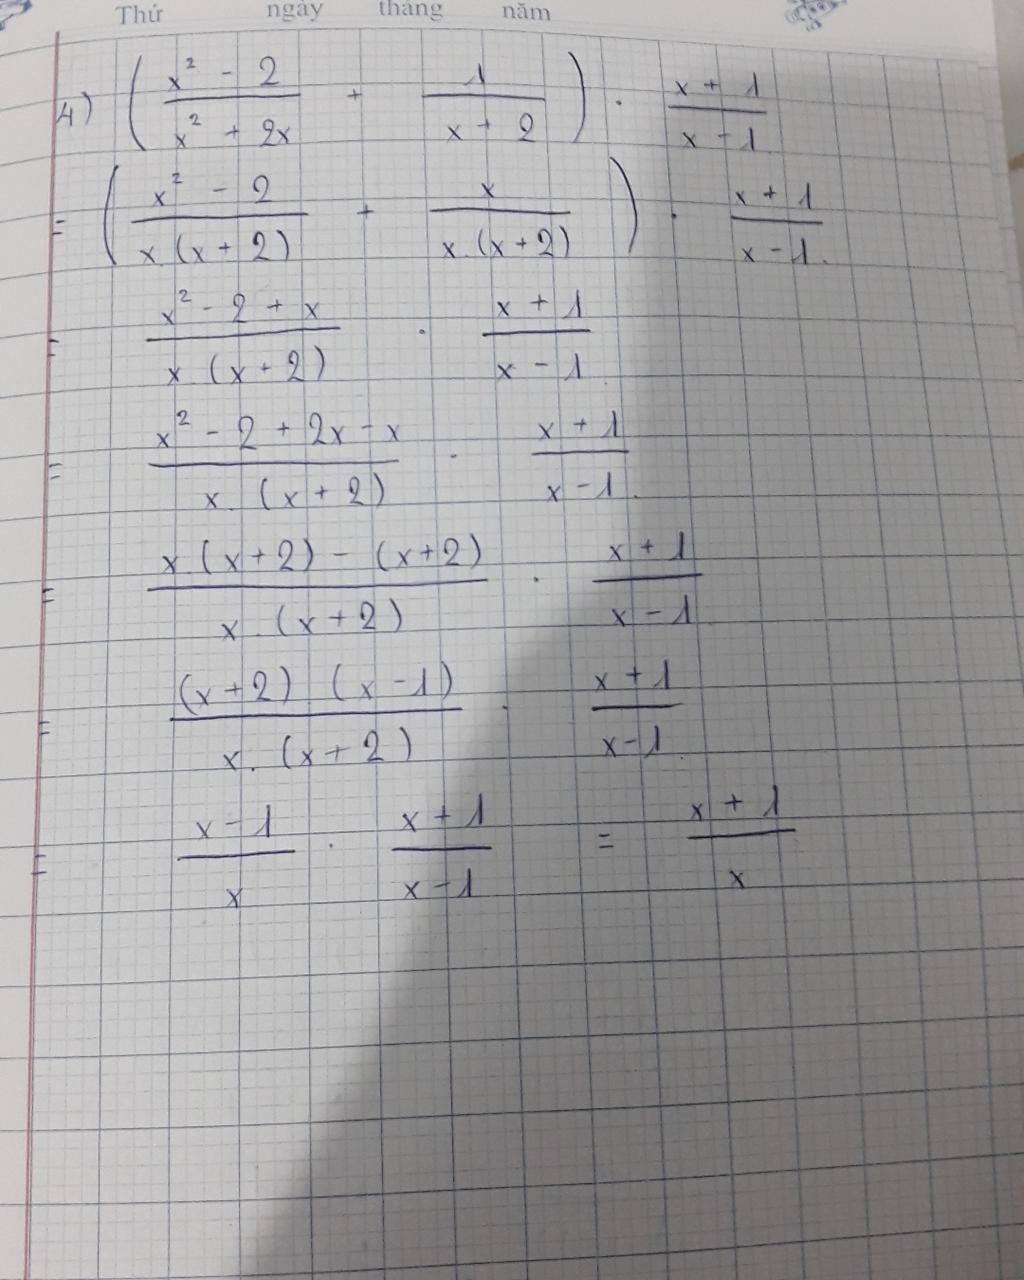 Thứ ngày tháng năm
4) ( (x² - 2)/(x² + 2x) + 1/(x + 2) ) . (x + 1)/(x - 1)
= ( (x² - 2)/(x.(x + 2)) + x/(x.(x + 2)) ) . (x + 1)/(x - 1)
= (x² - 2 + x)/(x.(x + 2)) . (x + 1)/(x - 1)
= (x² - 2 + 2x - x)/(x.(x + 2)) . (x + 1)/(x - 1)
= (x.(x + 2) - (x + 2))/(x.(x + 2)) . (x + 1)/(x - 1)
= ((x + 2)(x - 1))/(x.(x + 2)) . (x + 1)/(x - 1)
= (x - 1)/x . (x + 1)/(x - 1) = (x + 1)/x